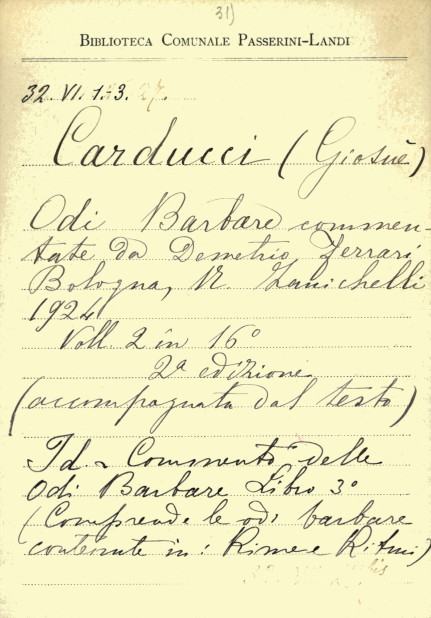 31)
BIBLIOTECA COMUNALE PASSERINI-LANDI
32. VI. 1.-3.
Carducci (Giosuè)
Odi Barbare commen-
tate da Demetrio Ferrari
Bologna, N. Zanichelli
1924
Voll 2 in 16°
2a edizione
(accompagnata dal testo)
Id - Commento delle
Odi Barbare Libro 3°
(Comprende le odi barbare
contenute in: Rime e Ritmi)